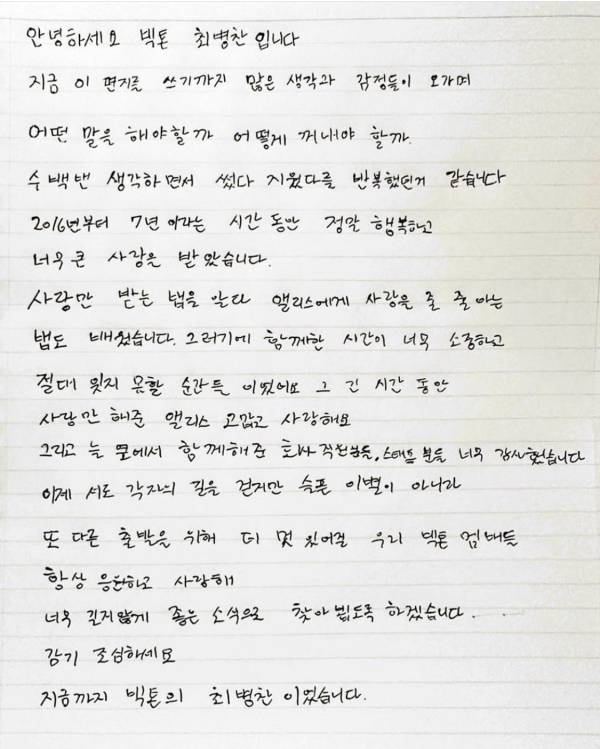 안녕하세요 빅톤 최병찬 입니다
지금 이 편지를 쓰기까지 많은 생각과 감정들이 오가며
어떤 말을 해야할까 어떻게 꺼내야 할까.
수백번 생각하면서 썼다 지웠다를 반복했던거 같습니다
2016년부터 7년 이라는 시간 동안 정말 행복하고
너무 큰 사랑을 받았습니다.
사랑만 받는 법을 알다 앨리스에게 사랑을 줄 줄 아는
법도 배웠습니다. 그러기에 함께한 시간이 너무 소중하고
절대 잊지 못할 순간들 이었어요 그 긴 시간 동안
사랑만 해준 앨리스 고맙고 사랑해요
그리고 늘 옆에서 함께해준 회사 직원분들, 스태프 분들 너무 감사했습니다
이제 서로 각자의 길을 걷지만 슬픈 이별이 아니라
또 다른 출발을 위해 더 멋있어질 우리 빅톤 멤버들
항상 응원하고 사랑해
너무 길지않게 좋은 소식으로 찾아뵙도록 하겠습니다.
감기 조심하세요
지금까지 빅톤의 최병찬 이었습니다.